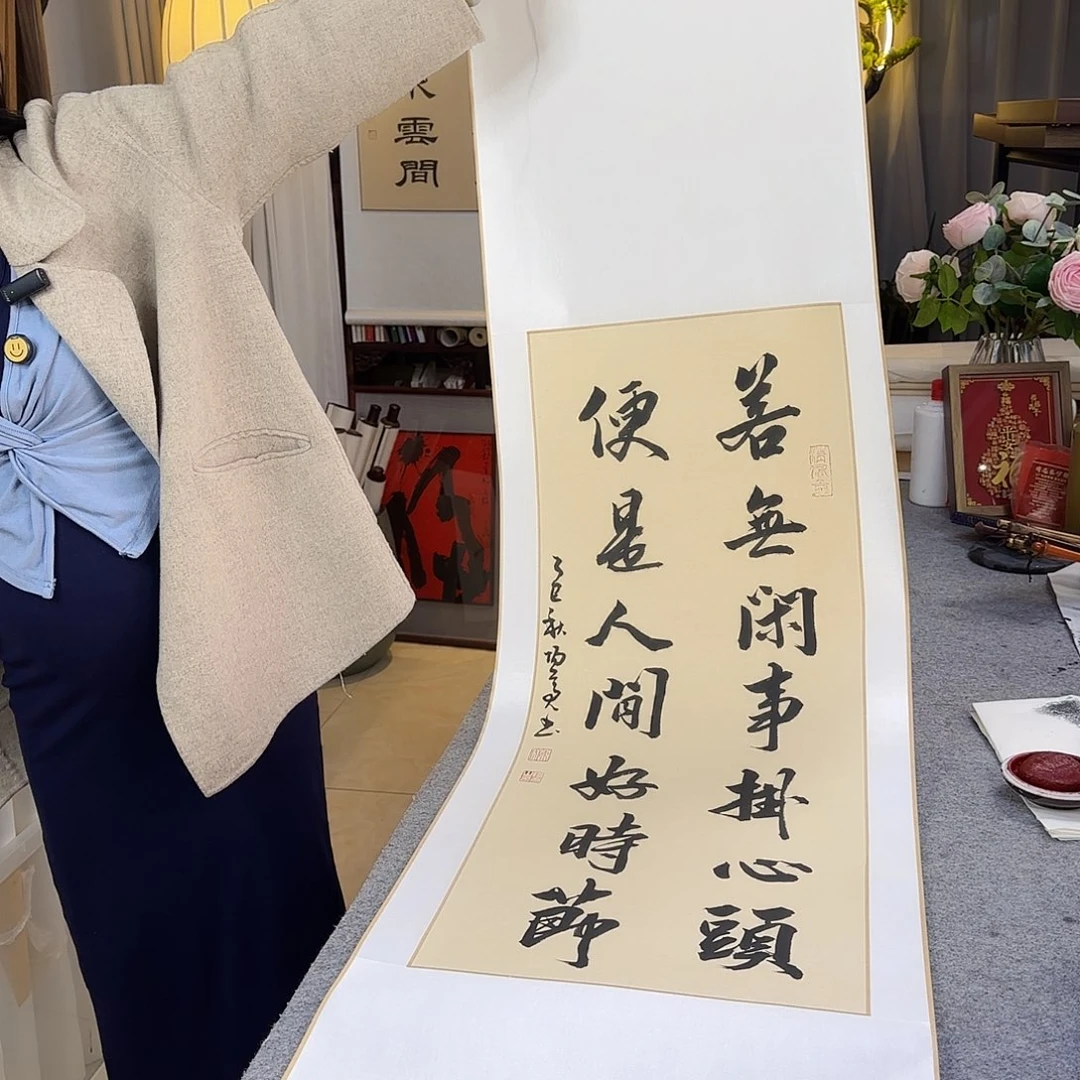 若無閑事掛心頭
便是人間好時節
乙巳秋
書
雲間